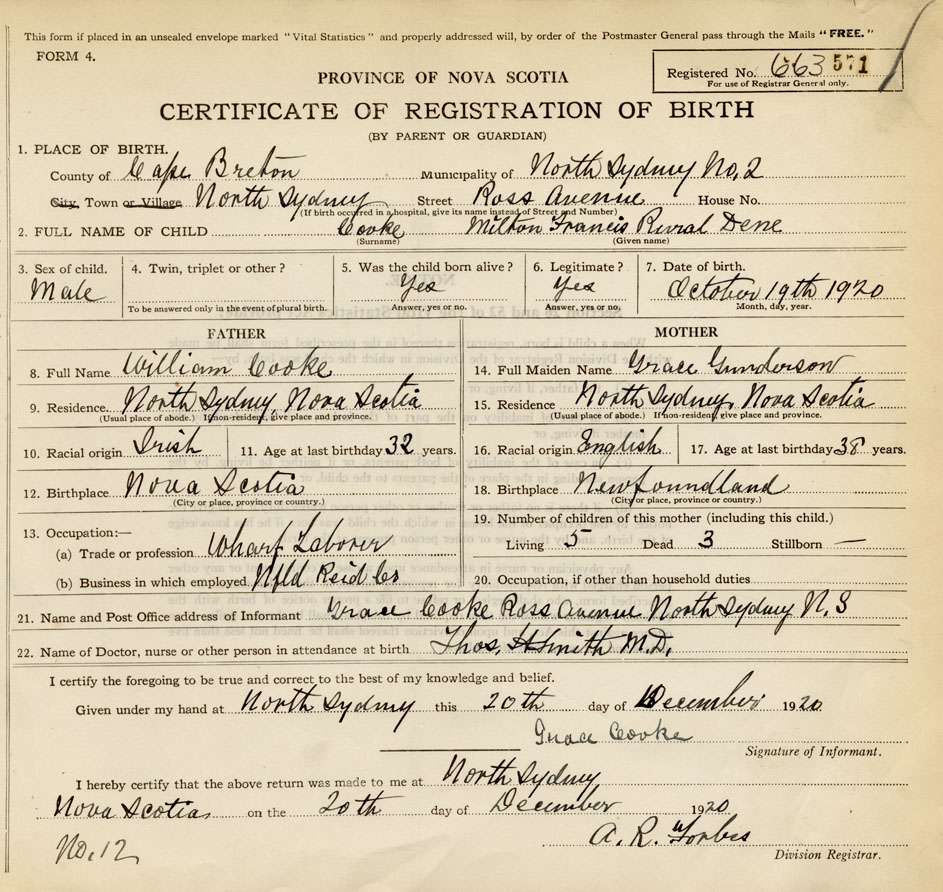 This form if placed in an unsealed envelope marked "Vital Statistics" and properly addressed will, by order of the Postmaster General pass through the Mails "FREE."
FORM 4.
Registered No. 663 571
For use of Registrar General only.
PROVINCE OF NOVA SCOTIA
CERTIFICATE OF REGISTRATION OF BIRTH
(BY PARENT OR GUARDIAN)
1. PLACE OF BIRTH.
County of Cape Breton Municipality of North Sydney No. 2
City, Town or Village North Sydney Street Ross Avenue House No.
(If birth occurred in a hospital, give its name instead of Street and Number)
2. FULL NAME OF CHILD Cooke Milton Francis Rural Dene
(Surname) (Given name)
3. Sex of child. 4. Twin, triplet or other? 5. Was the child born alive? 6. Legitimate? 7. Date of birth.
Male Yes Yes October 19th 1920
To be answered only in the event of plural birth. Answer, yes or no. Answer, yes or no. Month, day, year.
FATHER
8. Full Name William Cooke
9. Residence North Sydney, Nova Scotia
(Usual place of abode.) If non-resident, give place and province.
10. Racial origin Irish 11. Age at last birthday 32 years.
12. Birthplace Nova Scotia
(City or place, province or country.)
13. Occupation:—
(a) Trade or profession Wharf Laborer
(b) Business in which employed Nfld Reid Co
MOTHER
14. Full Maiden Name Grace Gunderson
15. Residence North Sydney, Nova Scotia
(Usual place of abode.) If non-resident, give place and province.
16. Racial origin English 17. Age at last birthday 38 years.
18. Birthplace Newfoundland
(City or place, province or country.)
19. Number of children of this mother (including this child.)
Living 5 Dead 3 Stillborn —
20. Occupation, if other than household duties
21. Name and Post Office address of Informant Grace Cooke Ross Avenue North Sydney N. S
22. Name of Doctor, nurse or other person in attendance at birth Thos. Smith M.D.
I certify the foregoing to be true and correct to the best of my knowledge and belief.
Given under my hand at North Sydney this 20th day of December 1920
Grace Cooke
Signature of Informant.
I hereby certify that the above return was made to me at North Sydney
Nova Scotia on the 20th day of December 1920
A. R. Forbes
Division Registrar.
No. 12